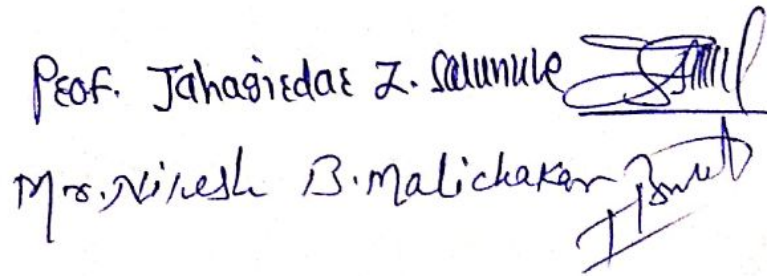 Prof. Jahagirdar Z. Salunule
Mr. Nilesh B. Malichakar